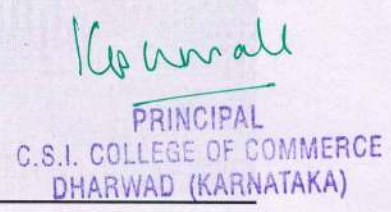 PRINCIPAL
C.S.I. COLLEGE OF COMMERCE
DHARWAD (KARNATAKA)